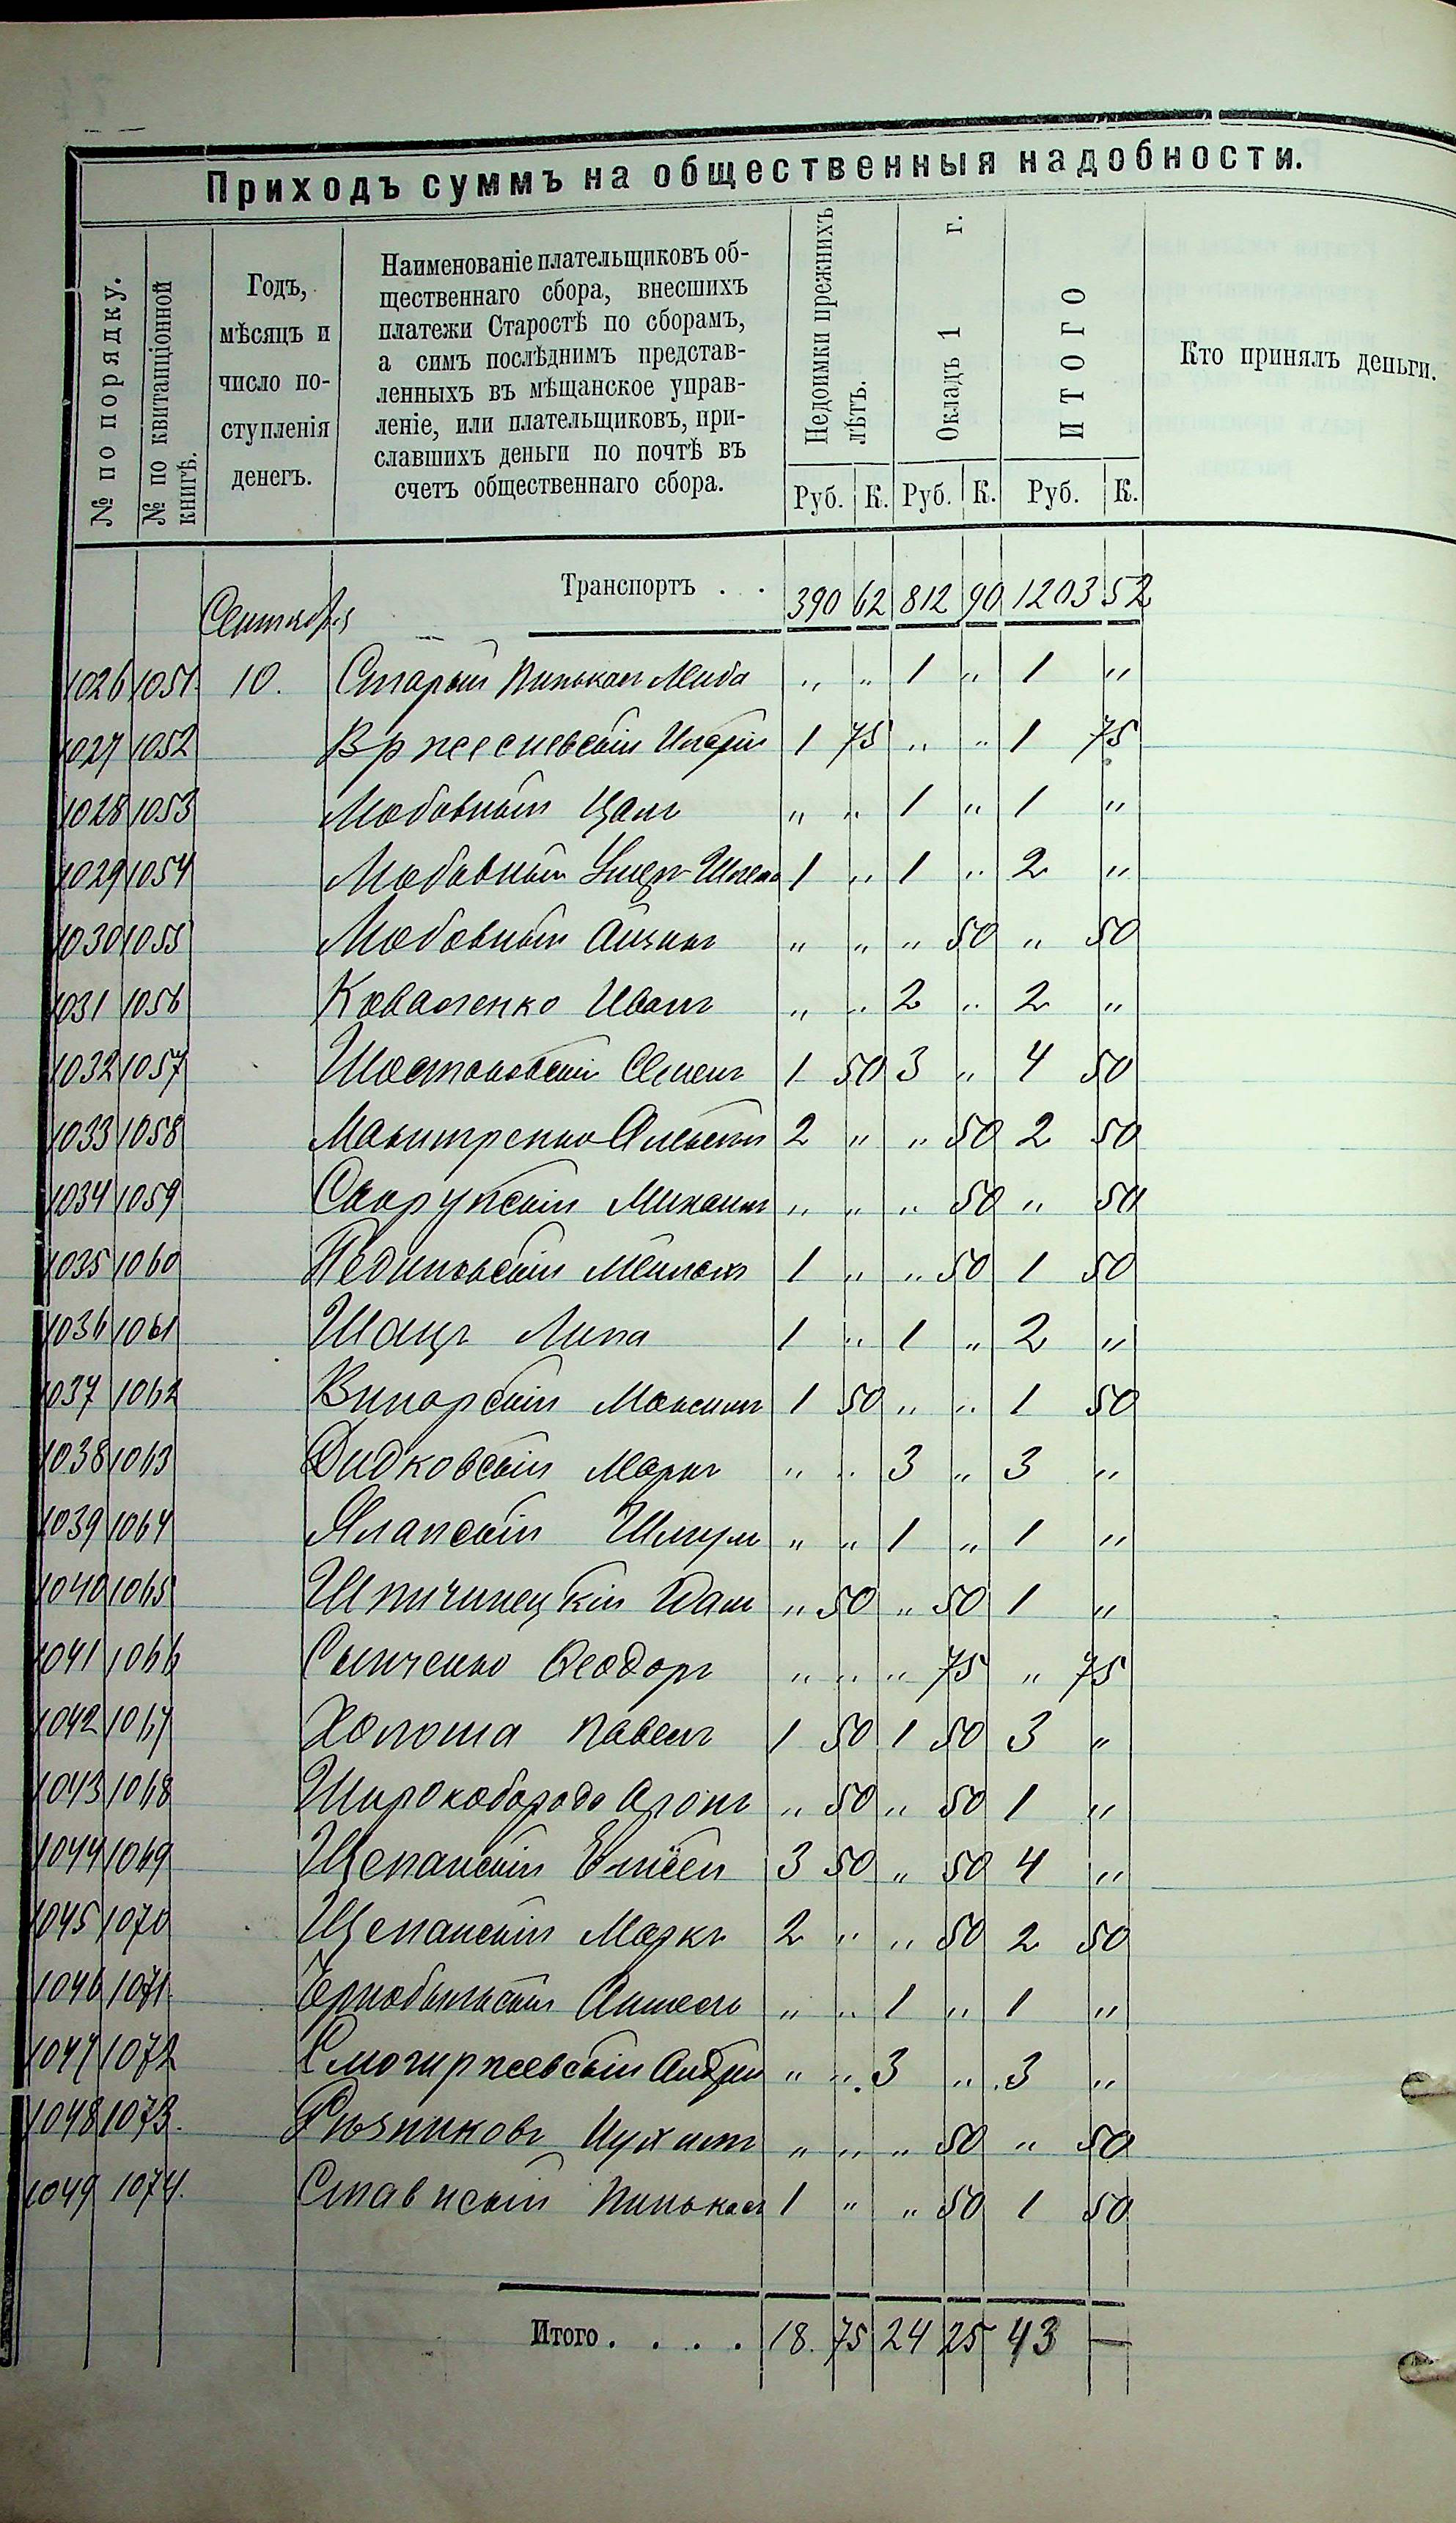 Приходъ суммъ на общественныя надобности.
№ по порядку.
№ по квитанціонной книгѣ.
Годъ, мѣсяцъ и число поступленія денегъ.
Наименованіе плательщиковъ об-
щественнаго сбора, внесшихъ
платежи Старостѣ по сборамъ,
а симъ послѣднимъ представ-
ленныхъ въ мѣщанское управ-
леніе, или плательщиковъ, при-
славшихъ деньги по почтѣ въ
счетъ общественнаго сбора.
Недоимки прежнихъ лѣтъ.
Окладъ 1 г.
ИТОГО
Кто принялъ деньги.
Руб. К. Руб. К. Руб. К.
Транспортъ . . 390 62 812 90 1203 52
Сентября
1026 1051 10. Старый Пинькас Лейба " " 1 " 1 "
1027 1052 Вржесневскій 1 75 " " 1 75
1028 1053 " " 1 " 1 "
1029 1054 1 " 1 " 2 "
1030 1055 " " " 50 " 50
1031 1056 Коваленко Иванъ " " 2 " 2 "
1032 1057 Шостаковскій Семенъ 1 50 3 " 4 50
1033 1058 Макитренко Алексѣй 2 " " 50 2 50
1034 1059 Михаилъ " " " 50 " 50
1035 1060 1 " " 50 1 50
1036 1061 Шацъ Липа 1 " 1 " 2 "
1037 1062 Винарскій Максимъ 1 50 " " 1 50
1038 1063 Дидковскій Маркъ " " 3 " 3 "
1039 1064 Шмулъ " " 1 " 1 "
1040 1065 Шпичинецкій " 50 " 50 1 "
1041 1066 Сынченко Феодоръ " " " 75 " 75
1042 1067 Холоша Павелъ 1 50 1 50 3 "
1043 1068 Широкоборода Аронъ " 50 " 50 1 "
1044 1069 Щепанскій Елисей 3 50 " 50 4 "
1045 1070 Щепанскій Маркъ 2 " " 50 2 50
1046 1071 Чернобыльскій Аншель " " 1 " 1 "
1047 1072 Смогиржевскій Андрей " " 3 " 3 "
1048 1073. Рѣзниковъ " " " 50 " 50
1049 1074. Ставискій Пинькас 1 " " 50 1 50
Итого . . . . 18. 75 24 25 43 —